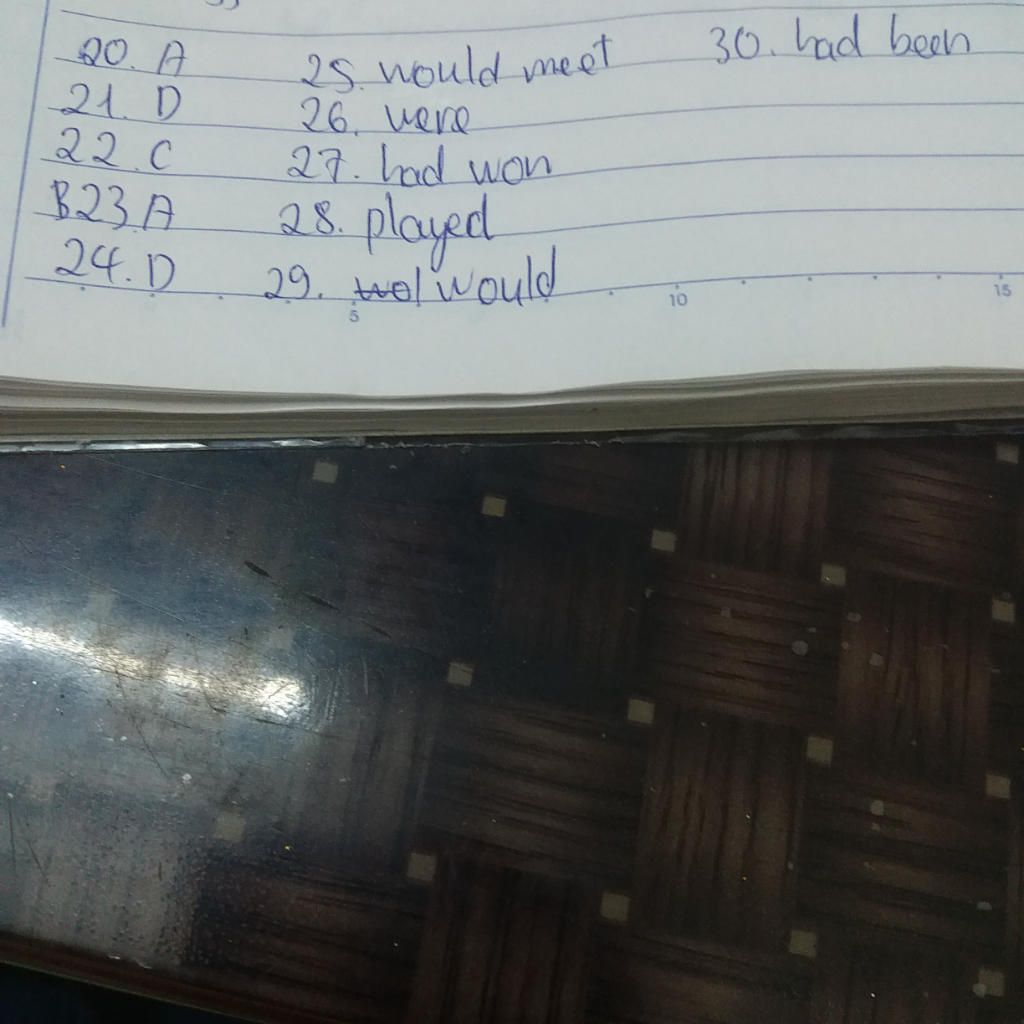 20. A 25. would meet 30. had been
21. D 26. were
22. C 27. had won
B23. A 28. played
24. D 29. would
5 10 15